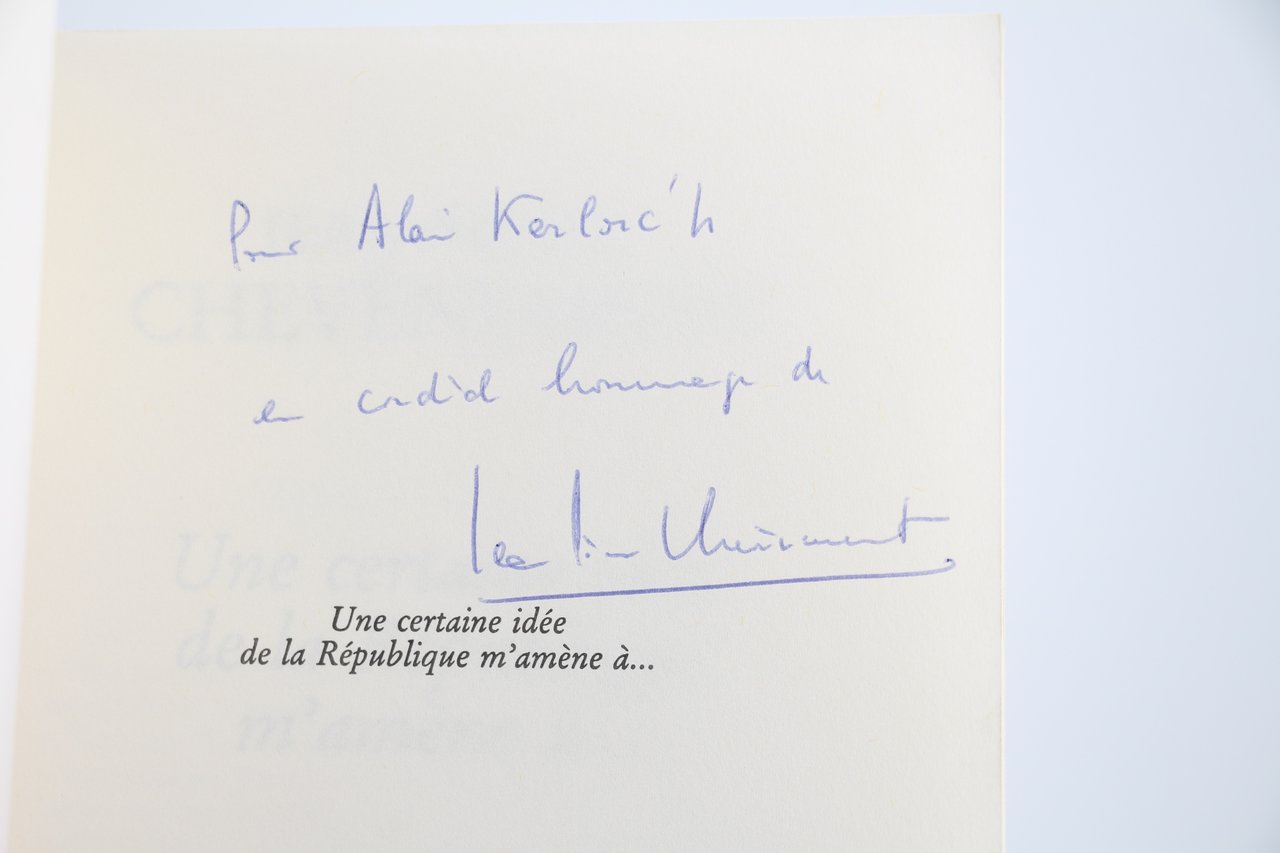 Pour Alain Kerlorc'h
en cordial hommage de
Jean Pierre Chevènement
Une certaine idée
de la République m'amène à...